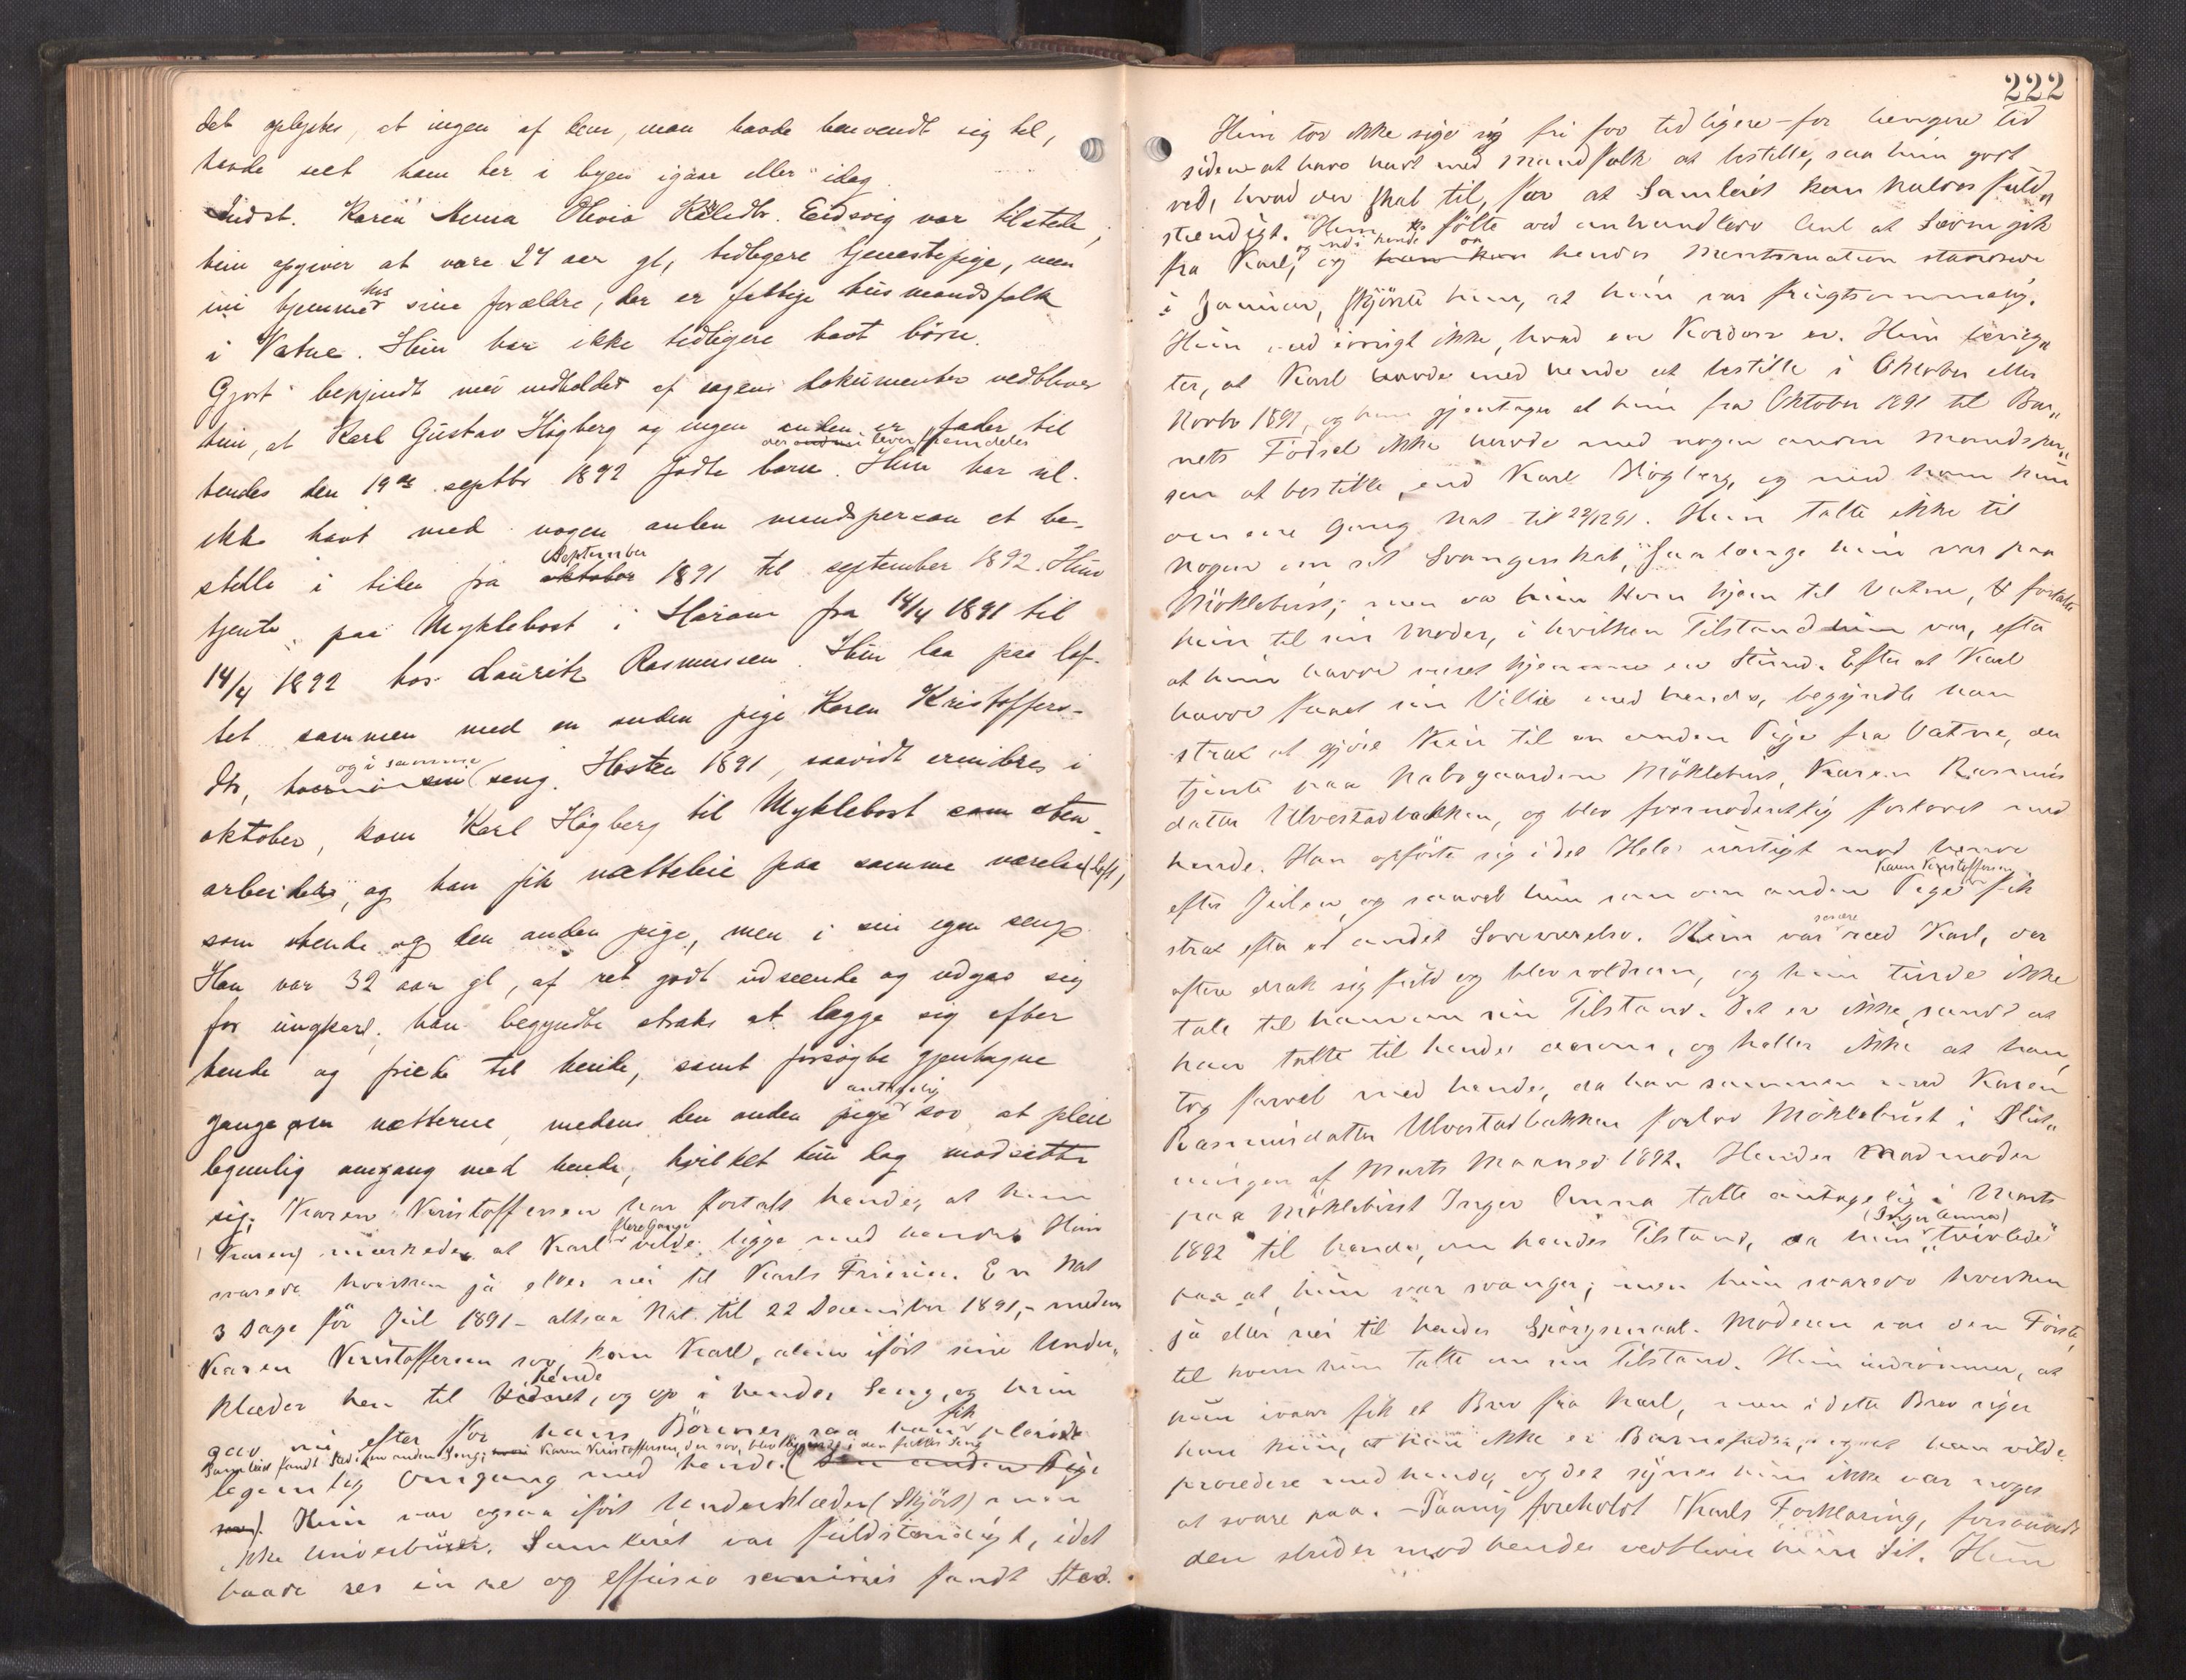 det oplystes, at ingen af dem, man havde henvendt sig til,
havde seet ham her i byen igaar eller idag.
Indst. Karen Anna Olivia Eidsvig var tilstede,
hun opgiver at være 24 aar gl, tidligere tjenestepige, nu
hjemme hos sine forældre, der er fattige husmandsfolk
i Vatne. Hun har ikke tidligere havt børn.
Gjort bekjendt med indholdet af sagens dokumenter vedbliver
hun, at Karl Gustav Högberg og ingen anden er fader til
der lever fremdeles
hendes den 19de septbr 1892 fødte barn. Hun har
ikke havt med nogen anden mandsperson at be-
September
stille i tiden fra oktober 1891 til september 1892. Hun
tjente paa Myklebost i Haram fra 14/4 1891 til
14/4 1892 hos Lauritz Rasmussen. Hun laa paa lof-
tet sammen med en anden pige Karen Kristoffers-
og i samme
dtr, seng. Høsten 1891, saavidt erindres i
oktober, kom Karl Högberg til Myklebost som sten-
arbeider, og han fik natteleie paa samme værelse (loft)
som hende og den anden pige, men i sin egen seng.
Han var 32 aar gl, af ret godt udseende og udgav sig
for ungkarl. han begyndte straks at lægge sig efter
hende og friede til hende, samt forsøgte gjentagne
antagelig
gange om nætterne, medens den anden pige sov at pleie
legemlig omgang med hende, hvilket hun dog modsatte
sig; Karen Kristoffersen har fortalt hende, at hun
flere Gange
(Karen) mærkede, at Karl vilde ligge med hende. Hun
svarede hverken ja eller nei til Karls Frierier. En Nat
3 Dage før Jul 1891 - altsaa Nat til 22 December 1891, - medens
Karen Kristoffersen sov, kom Karl, alene iført sine Under-
hende
klæder hen til Vidnet, og op i hendes Seng, og hun
fik
gav nu efter for hans Bönner, saa han pleiede
Samleiet fandt Sted i den anden Seng; Karen Kristoffersen, der sov, blev liggende i den fælles Seng
legemlig Omgang med hende. (Den anden Pige
sov). Hun var ogsaa iført Underklæder (Skjört) men
ikke Underbuxer. Samleiet var fuldstændigt, idet
baade res in re og effusio seminis fandt Sted.
222
Hun tör ikke sige sig fri for tidligere - for længere Tid
siden - at have havt med Mandfolk at bestille, saa hun godt
ved, hvad der skal til, for at Samleiet kan kaldes fuld-
stændigt. Hun følte ved anhandlede Anl. at Sæden gik
og ind i hende da
fra Karl, og hendes Menstruation standsede
i Januar, skjönte hun, at hun var frugtsommelig.
Hun ved iövrigt ikke, hvad en Kordon er. Hun benæg-
ter, at Karl havde med hende at bestille i Oktober eller
Novbr 1891, og hun gjentager at hun fra Oktober 1891 til Bar-
nets Födsel ikke havde med nogen anden Mandsper-
son at bestille, end Karl Högberg, og med ham kun
den ene Gang Nat til 22/12 91. Hun talte ikke til
nogen om sit Svangerskab, saalænge hun var paa
Möklebust; men da hun kom hjem til Vatne, fortalte
hun til sin Moder, i hvilken Tilstand hun var, efter
at hun havde været hjemme en Stund. Efter at Karl
havde faaet sin Villie med hende, begyndte han
strax at gjöre Kur til en anden Pige fra Vatne, der
tjente paa Nabogaarden Möklebust, Karen Rasmus
datter Ulvestadbakken, og blev formodentlig forlovet med
hende. Han opförte sig i det Hele uartigt mod hende
Karen Kristoffersen
efter Julen, og saavel hun som den anden Pige fik
senere
strax efter et andet Soveværelse. Hun var ræd Karl, der
oftere drak sig fuld og blev voldsom, og hun turde ikke
tale til ham om sin Tilstand. Det er ikke sandt at
han talte til hende derom, og heller ikke at han
tog Farvel med hende, da han sammen med Karen
Rasmusdatter Ulvestadbakken forlod Möklebust i Slut-
ningen af Marts Maaned 1892. Hendes Madmoder
paa Möklebust Inger Anna talte antagelig i Marts
(Inger Anna)
1892 til hende, om hendes Tilstand, da hun „tvivlede"
paa at hun var svanger; men hun svarede hverken
ja eller nei til hendes Spörgsmaal. Moderen var den Förste,
til hvem hun talte om sin Tilstand. Hun indrömmer, at
hun ivaar fik et Brev fra Karl, men i dette Brev siger
han kun, at han ikke er Barnefader, og at han vilde
procedere med hende, og det synes hun ikke var noget
at svare paa. - Paany foreholdt Karls Forklaring, forsaavidt
den strider mod hendes vedbliver hun Sit. Hun